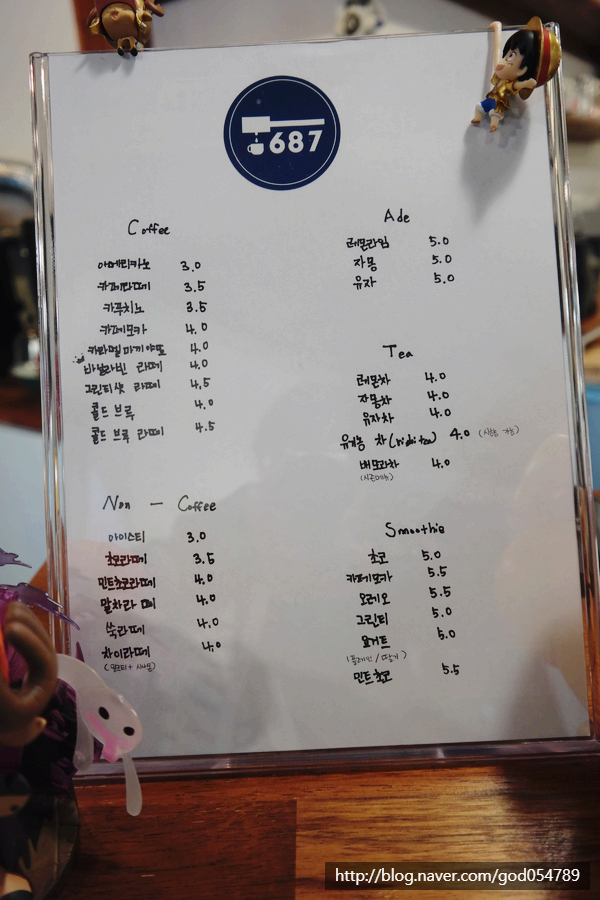 687
Coffee
아메리카노 3.0
카페라떼 3.5
카푸치노 3.5
카페모카 4.0
카라멜마끼야또 4.0
바닐라빈 라떼 4.0
그린티샷 라떼 4.5
콜드 브루 4.0
콜드 브루 라떼 4.5
Non - Coffee
아이스티 3.0
초코라떼 3.5
민트초코라떼 4.0
말차라떼 4.0
쑥라떼 4.0
차이라떼 4.0
Ade
레몬라임 5.0
자몽 5.0
유자 5.0
Tea
레몬차 4.0
자몽차 4.0
유자차 4.0
유기농 차 4.0
배모과차 4.0
(시즌메뉴)
Smoothie
초코 5.0
카페모카 5.5
오레오 5.5
그린티 5.0
요거트 5.0
(플레인/딸기)
민트초코 5.5
http://blog.naver.com/god054789